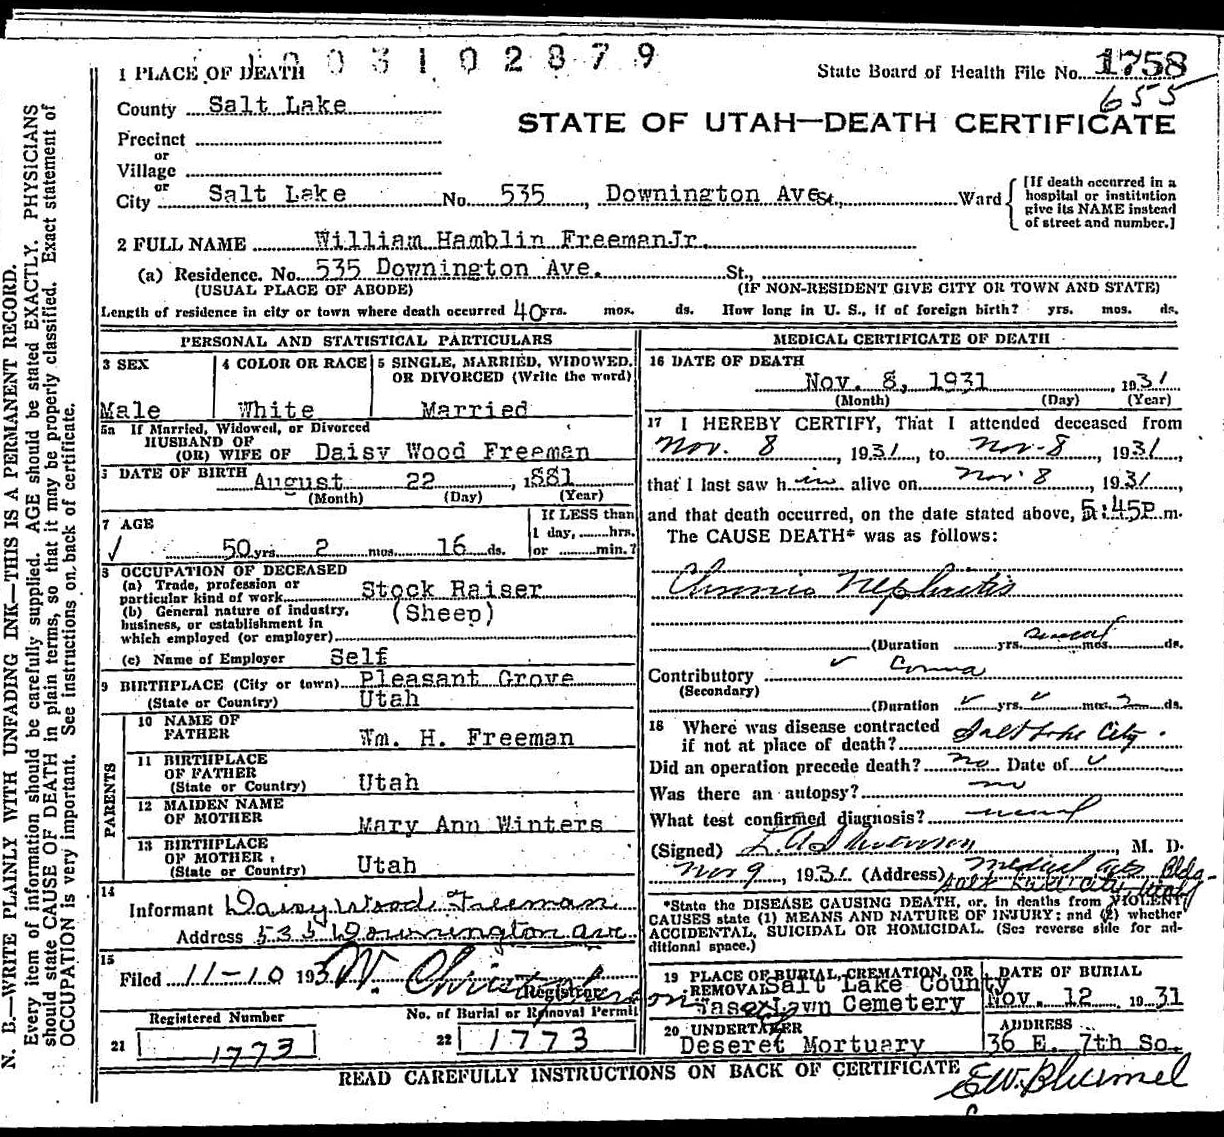 0 0 3 1 0 2 8 7 9
1 PLACE OF DEATH
State Board of Health File No. 1758
655
County Salt Lake
STATE OF UTAH—DEATH CERTIFICATE
Precinct
or
Village
or
City Salt Lake No. 535, Downington Ave St., Ward
[If death occurred in a
hospital or institution
give its NAME instead
of street and number.]
2 FULL NAME William Hamblin Freeman Jr.
(a) Residence. No. 535 Downington Ave. St.,
(USUAL PLACE OF ABODE) (IF NON-RESIDENT GIVE CITY OR TOWN AND STATE)
Length of residence in city or town where death occurred 40 yrs. mos. ds. How long in U. S., if of foreign birth? yrs. mos. ds.
PERSONAL AND STATISTICAL PARTICULARS
3 SEX
Male
4 COLOR OR RACE
White
5 SINGLE, MARRIED, WIDOWED,
OR DIVORCED (Write the word)
Married
5a If Married, Widowed, or Divorced
HUSBAND OF
(OR) WIFE OF Daisy Wood Freeman
DATE OF BIRTH August 22, 1881
(Month) (Day) (Year)
7 AGE
50 yrs. 2 mos. 16 ds.
If LESS than
1 day, hrs.
or min.?
8 OCCUPATION OF DECEASED
(a) Trade, profession or
particular kind of work Stock Raiser
(b) General nature of industry, (Sheep)
business, or establishment in
which employed (or employer)
(c) Name of Employer Self
9 BIRTHPLACE (City or town) Pleasant Grove
(State or Country) Utah
PARENTS
10 NAME OF
FATHER Wm. H. Freeman
11 BIRTHPLACE
OF FATHER
(State or Country) Utah
12 MAIDEN NAME
OF MOTHER Mary Ann Winters
13 BIRTHPLACE
OF MOTHER
(State or Country) Utah
14
Informant Daisy Wood Freeman
Address 535 Downington ave
15
Filed 11-10 193
Registrar
Registered Number
21 1773
No. of Burial or Removal Permit
22 1773
MEDICAL CERTIFICATE OF DEATH
16 DATE OF DEATH
Nov. 8, 1931, 1931
(Month) (Day) (Year)
17 I HEREBY CERTIFY, That I attended deceased from
Nov. 8, 1931, to Nov-8, 1931,
that I last saw him alive on Nov 8, 1931,
and that death occurred, on the date stated above, 5:45P m.
The CAUSE DEATH* was as follows:
Chronic Nephritis
(Duration yrs. several mos. ds.
Contributory Coma
(Secondary)
(Duration yrs. mos. 2 ds.
18 Where was disease contracted
if not at place of death? Salt Lake City.
Did an operation precede death? no Date of
Was there an autopsy? no
What test confirmed diagnosis? usual
(Signed) M. D.
Nov 9, 1931. (Address) Medical Arts Bldg
Salt Lake City, Utah
*State the DISEASE CAUSING DEATH, or, in deaths from VIOLENT
CAUSES state (1) MEANS AND NATURE OF INJURY: and (2) whether
ACCIDENTAL, SUICIDAL OR HOMICIDAL. (See reverse side for ad-
ditional space.)
19 PLACE OF BURIAL, CREMATION, OR
REMOVAL Salt Lake County
Lawn Cemetery
DATE OF BURIAL
Nov. 12 1931
20 UNDERTAKER
Deseret Mortuary
ADDRESS
36 E. 7th So.
READ CAREFULLY INSTRUCTIONS ON BACK OF CERTIFICATE
N. B.—WRITE PLAINLY WITH UNFADING INK—THIS IS A PERMANENT RECORD.
Every item of information should be carefully supplied. AGE should be stated EXACTLY. PHYSICIANS
should state CAUSE OF DEATH in plain terms, so that it may be properly classified. Exact statement of
OCCUPATION is very important. See Instructions on back of certificate.